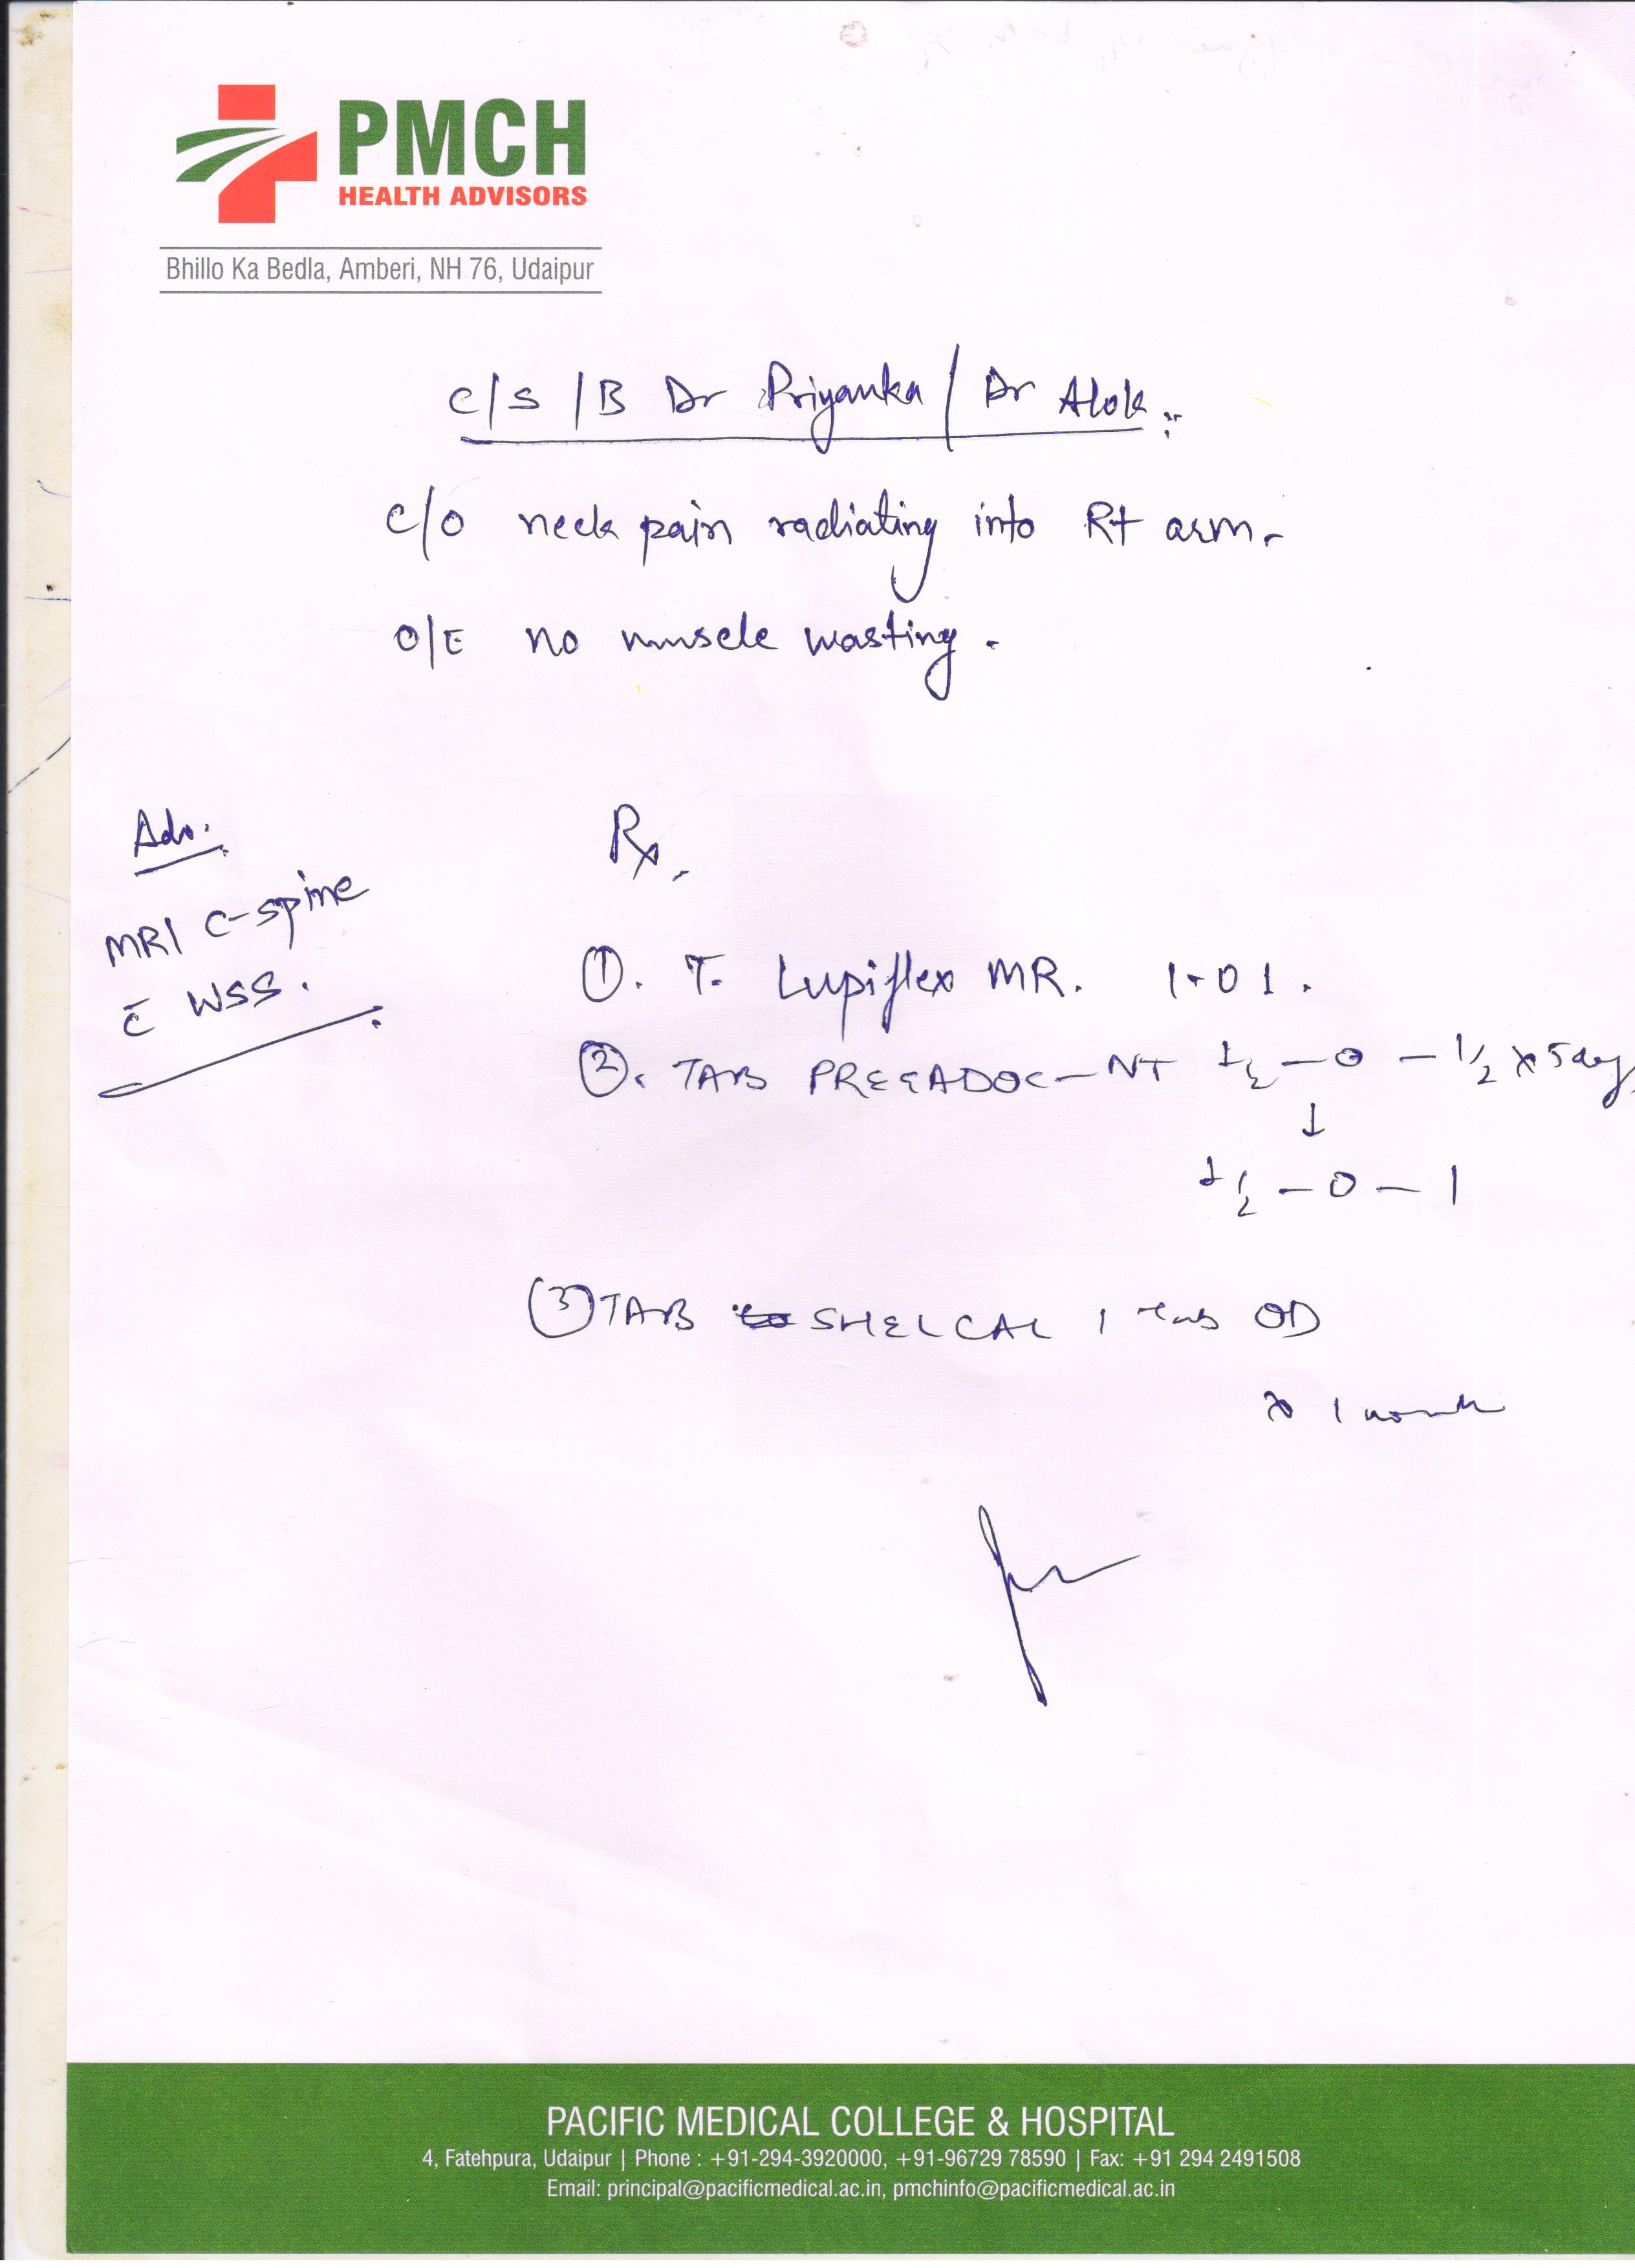 PMCH
HEALTH ADVISORS
Bhillo Ka Bedla, Amberi, NH 76, Udaipur
C/S/B Dr Priyanka / Dr Alok
C/O neck pain radiating into Rt arm.
O/E no muscle wasting.
Adv.
MRI C-spine
c̄ WSS.
Rx
①. T. Lupiflex MR. 1-0 1.
②. TAB PREGADOC-NT 1/2 - 0 - 1/2 x 5 days
↓
1/2 - 0 - 1
③ TAB SHELCAL 1 tab OD
x 1 month
PACIFIC MEDICAL COLLEGE & HOSPITAL
4, Fatehpura, Udaipur | Phone : +91-294-3920000, +91-96729 78590 | Fax: +91 294 2491508
Email: principal@pacificmedical.ac.in, pmchinfo@pacificmedical.ac.in